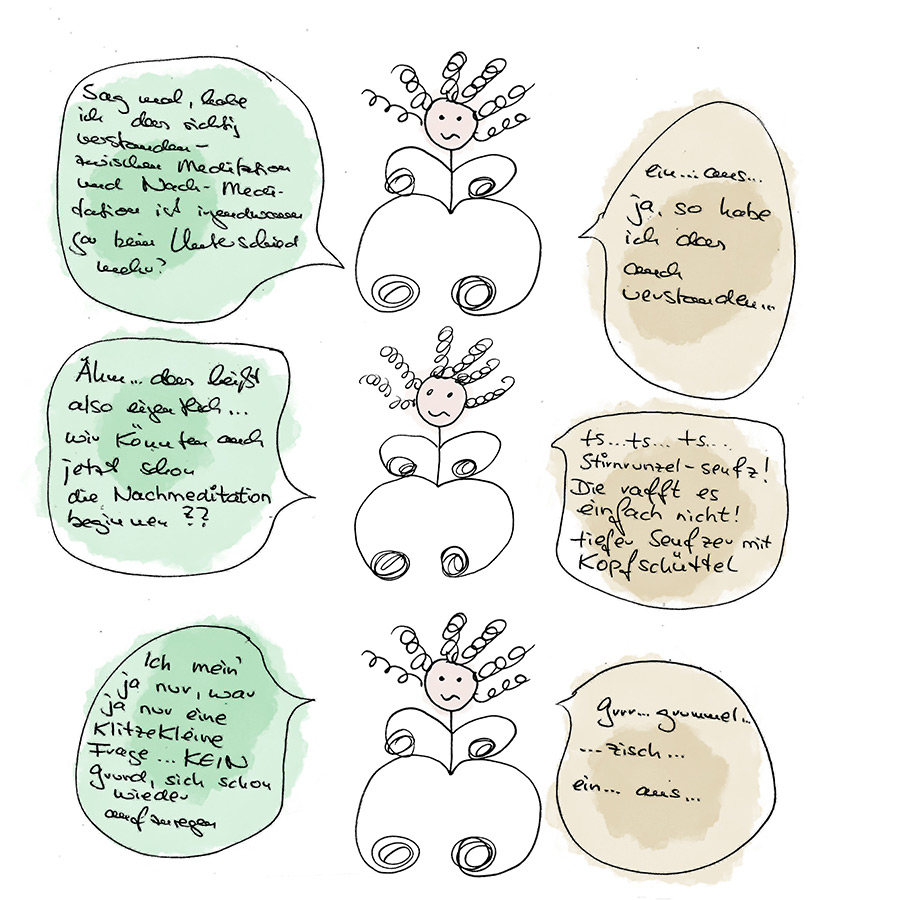 Sag mal, habe
ich das richtig
verstanden -
zwischen Meditation
und Nach-Medi-
tation ist irgendwann
gar kein Unterschied
mehr?
ein... aus...
ja, so habe
ich das
auch
verstanden...
Ähm... das heißt
also eigentlich...
wir könnten auch
jetzt schon
die Nachmeditation
beginnen ??
ts...ts... ts...
Stirnrunzel-seufz!
Die rafft es
einfach nicht!
tiefer Seufzer mit
Kopfschüttel
Ich mein'
ja nur, war
ja nur eine
klitzekleine
Frage ... KEIN
grund, sich schon
wieder
aufzuregen
grrr... grummel...
...zisch...
ein... aus...